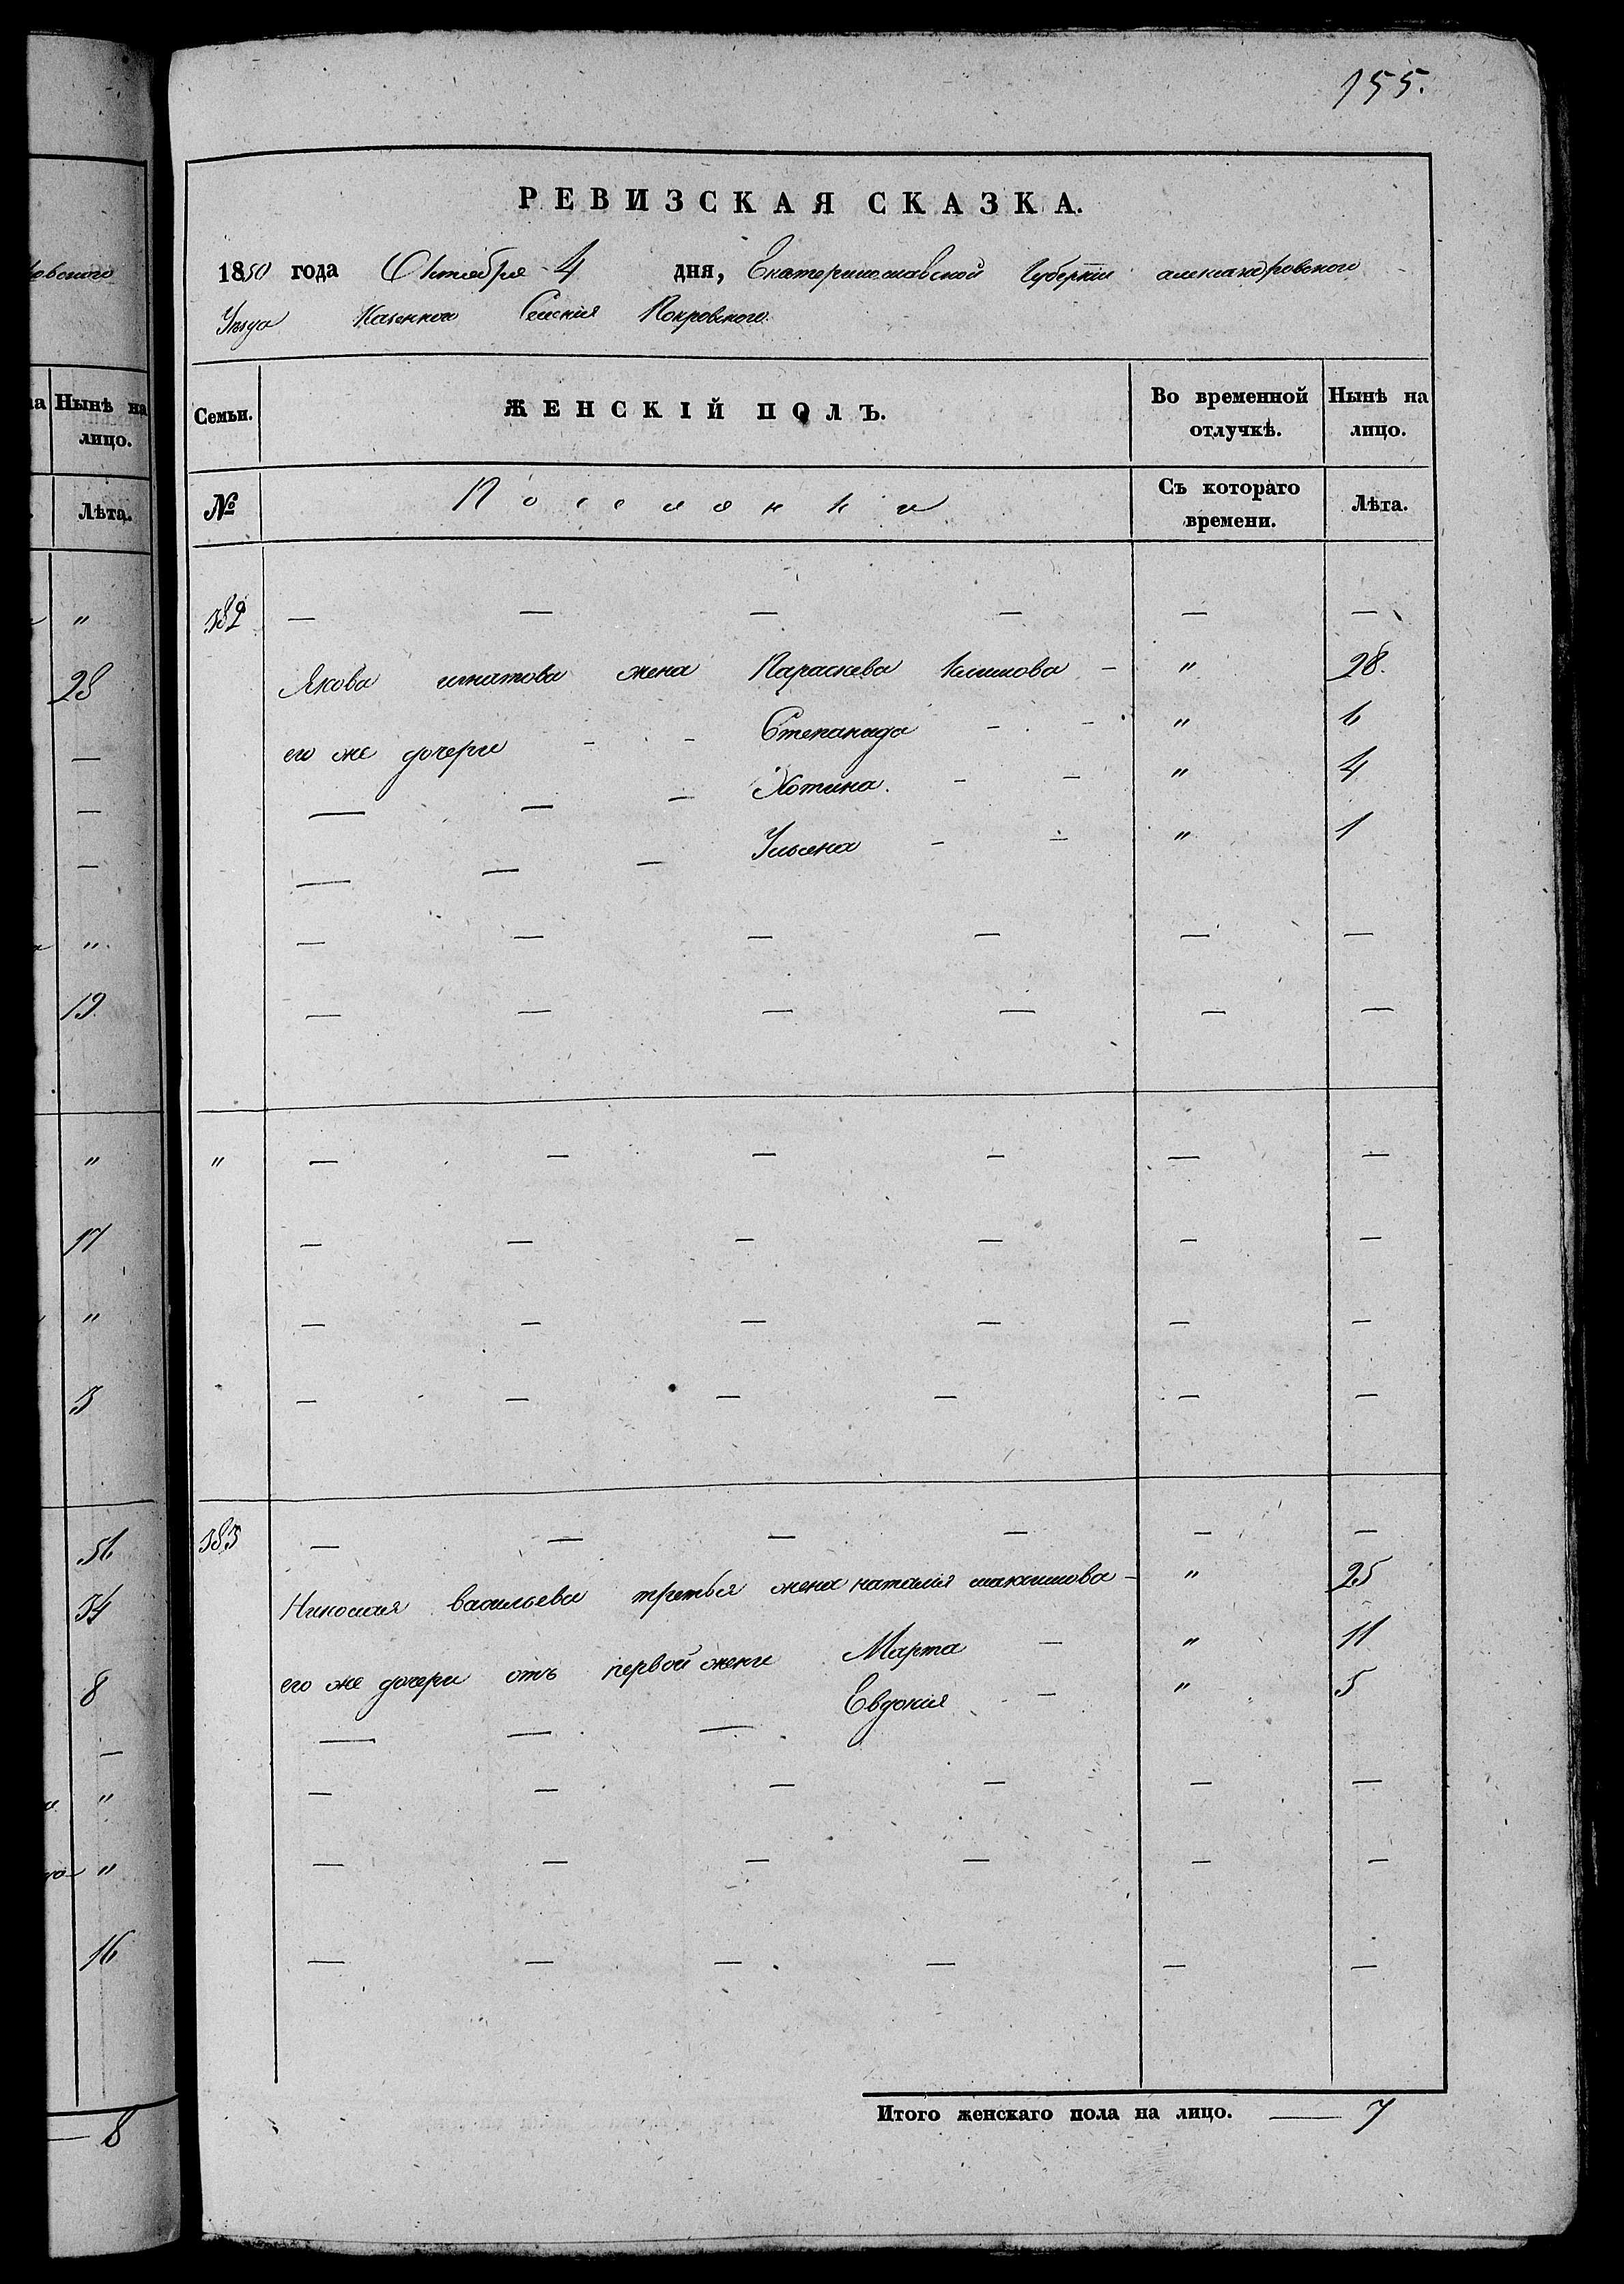 155.
РЕВИЗСКАЯ СКАЗКА.
1850 года Октября 4 дня, Екатеринославской Губернiи александровского
Уезда Казенного Селенiя Покровского.
Семьи. ЖЕНСКIЙ ПОЛЪ. Во временной отлучкѣ. Нынѣ на лицо.
№ Поселянки Съ котораго времени. Лѣта.
382 — — — — — —
Якова игнатова жена Параскева Климова — " 28.
его же дочери - - Степанида - - " 6
— — — Хотина. - - " 4
— — — Ульяна - - " 1
— — — — — —
— — — — — —
" — — — — — —
— — — — — —
— — — — — —
— — — — — —
383 — — — — — —
Николая васильева третья жена наталiя максимова - " 25
его же дочери отъ первой жены Марта — " 11
— — — Евдокiя — " 5
— — — — — —
— — — — — —
— — — — — —
Итого женскаго пола на лицо. — 7
ковского
на Нынѣ на лицо.
Лѣта.
"
28
—
—
—
"
19
"
17
"
3
56
34
8
—
"
"
16
— 8